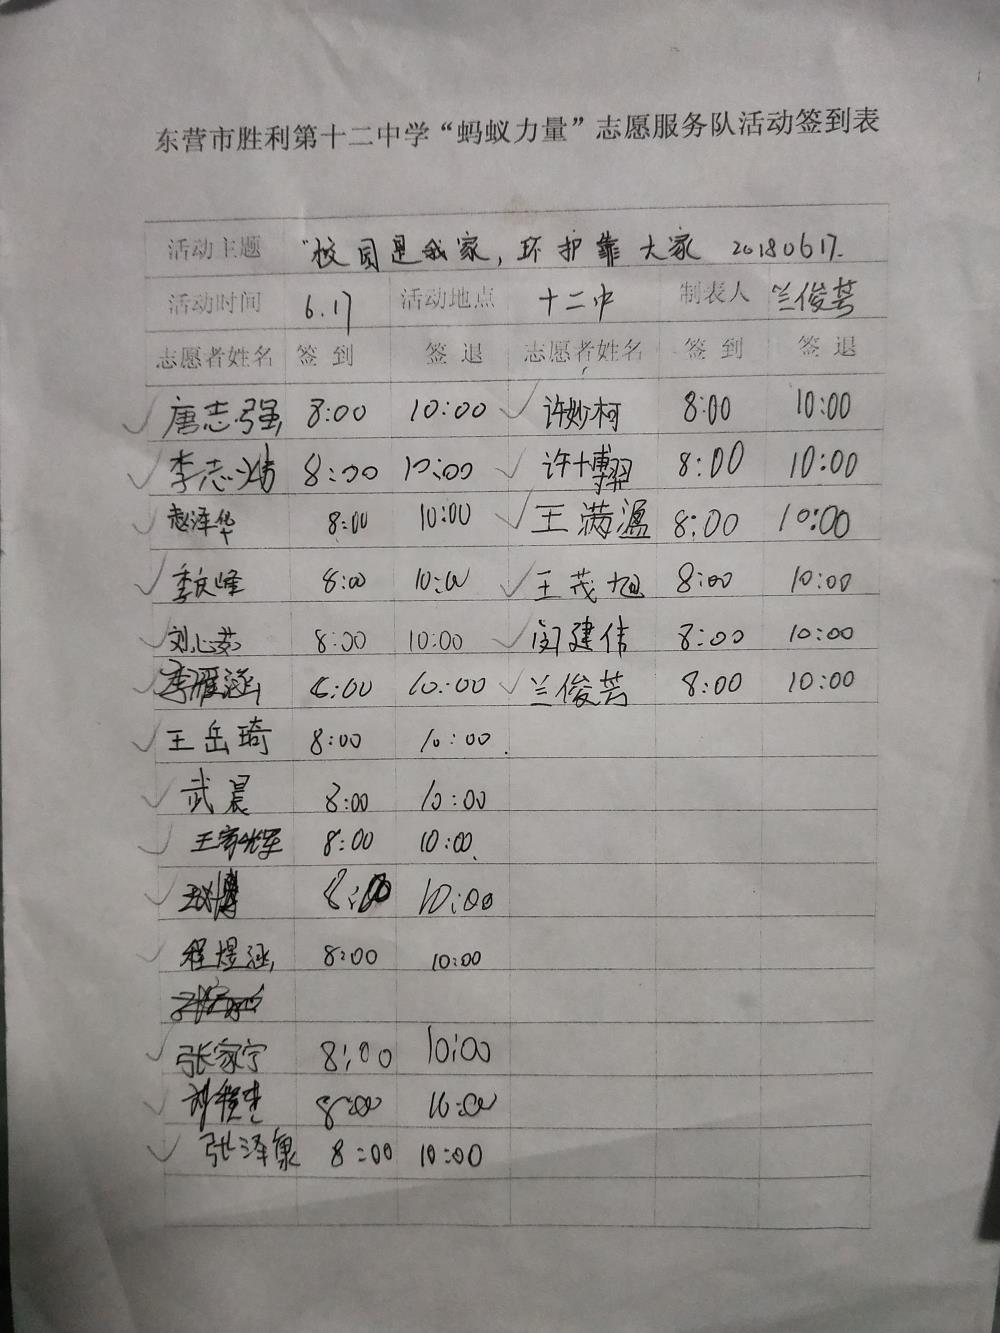 东营市胜利第十二中学“蚂蚁力量”志愿服务队活动签到表
活动主题 “校园是我家，环护靠大家 20180617.
活动时间 6.17 活动地点 十二中 制表人 兰俊芳
志愿者姓名 签到 签退 志愿者姓名 签到 签退
唐志强 8:00 10:00 许妙柯 8:00 10:00
李志炜 8:00 10:00 许博羿 8:00 10:00
赵泽华 8:00 10:00 王满溋 8:00 10:00
季文峰 8:00 10:00 王茂旭 8:00 10:00
刘心茹 8:00 10:00 闵建伟 8:00 10:00
李雁涵 8:00 10:00 兰俊芳 8:00 10:00
王岳琦 8:00 10:00
武晨 8:00 10:00
8:00 10:00
8:00 10:00
程煜涵 8:00 10:00
张家宁 8:00 10:00
8:00 10:00
张泽象 8:00 10:00